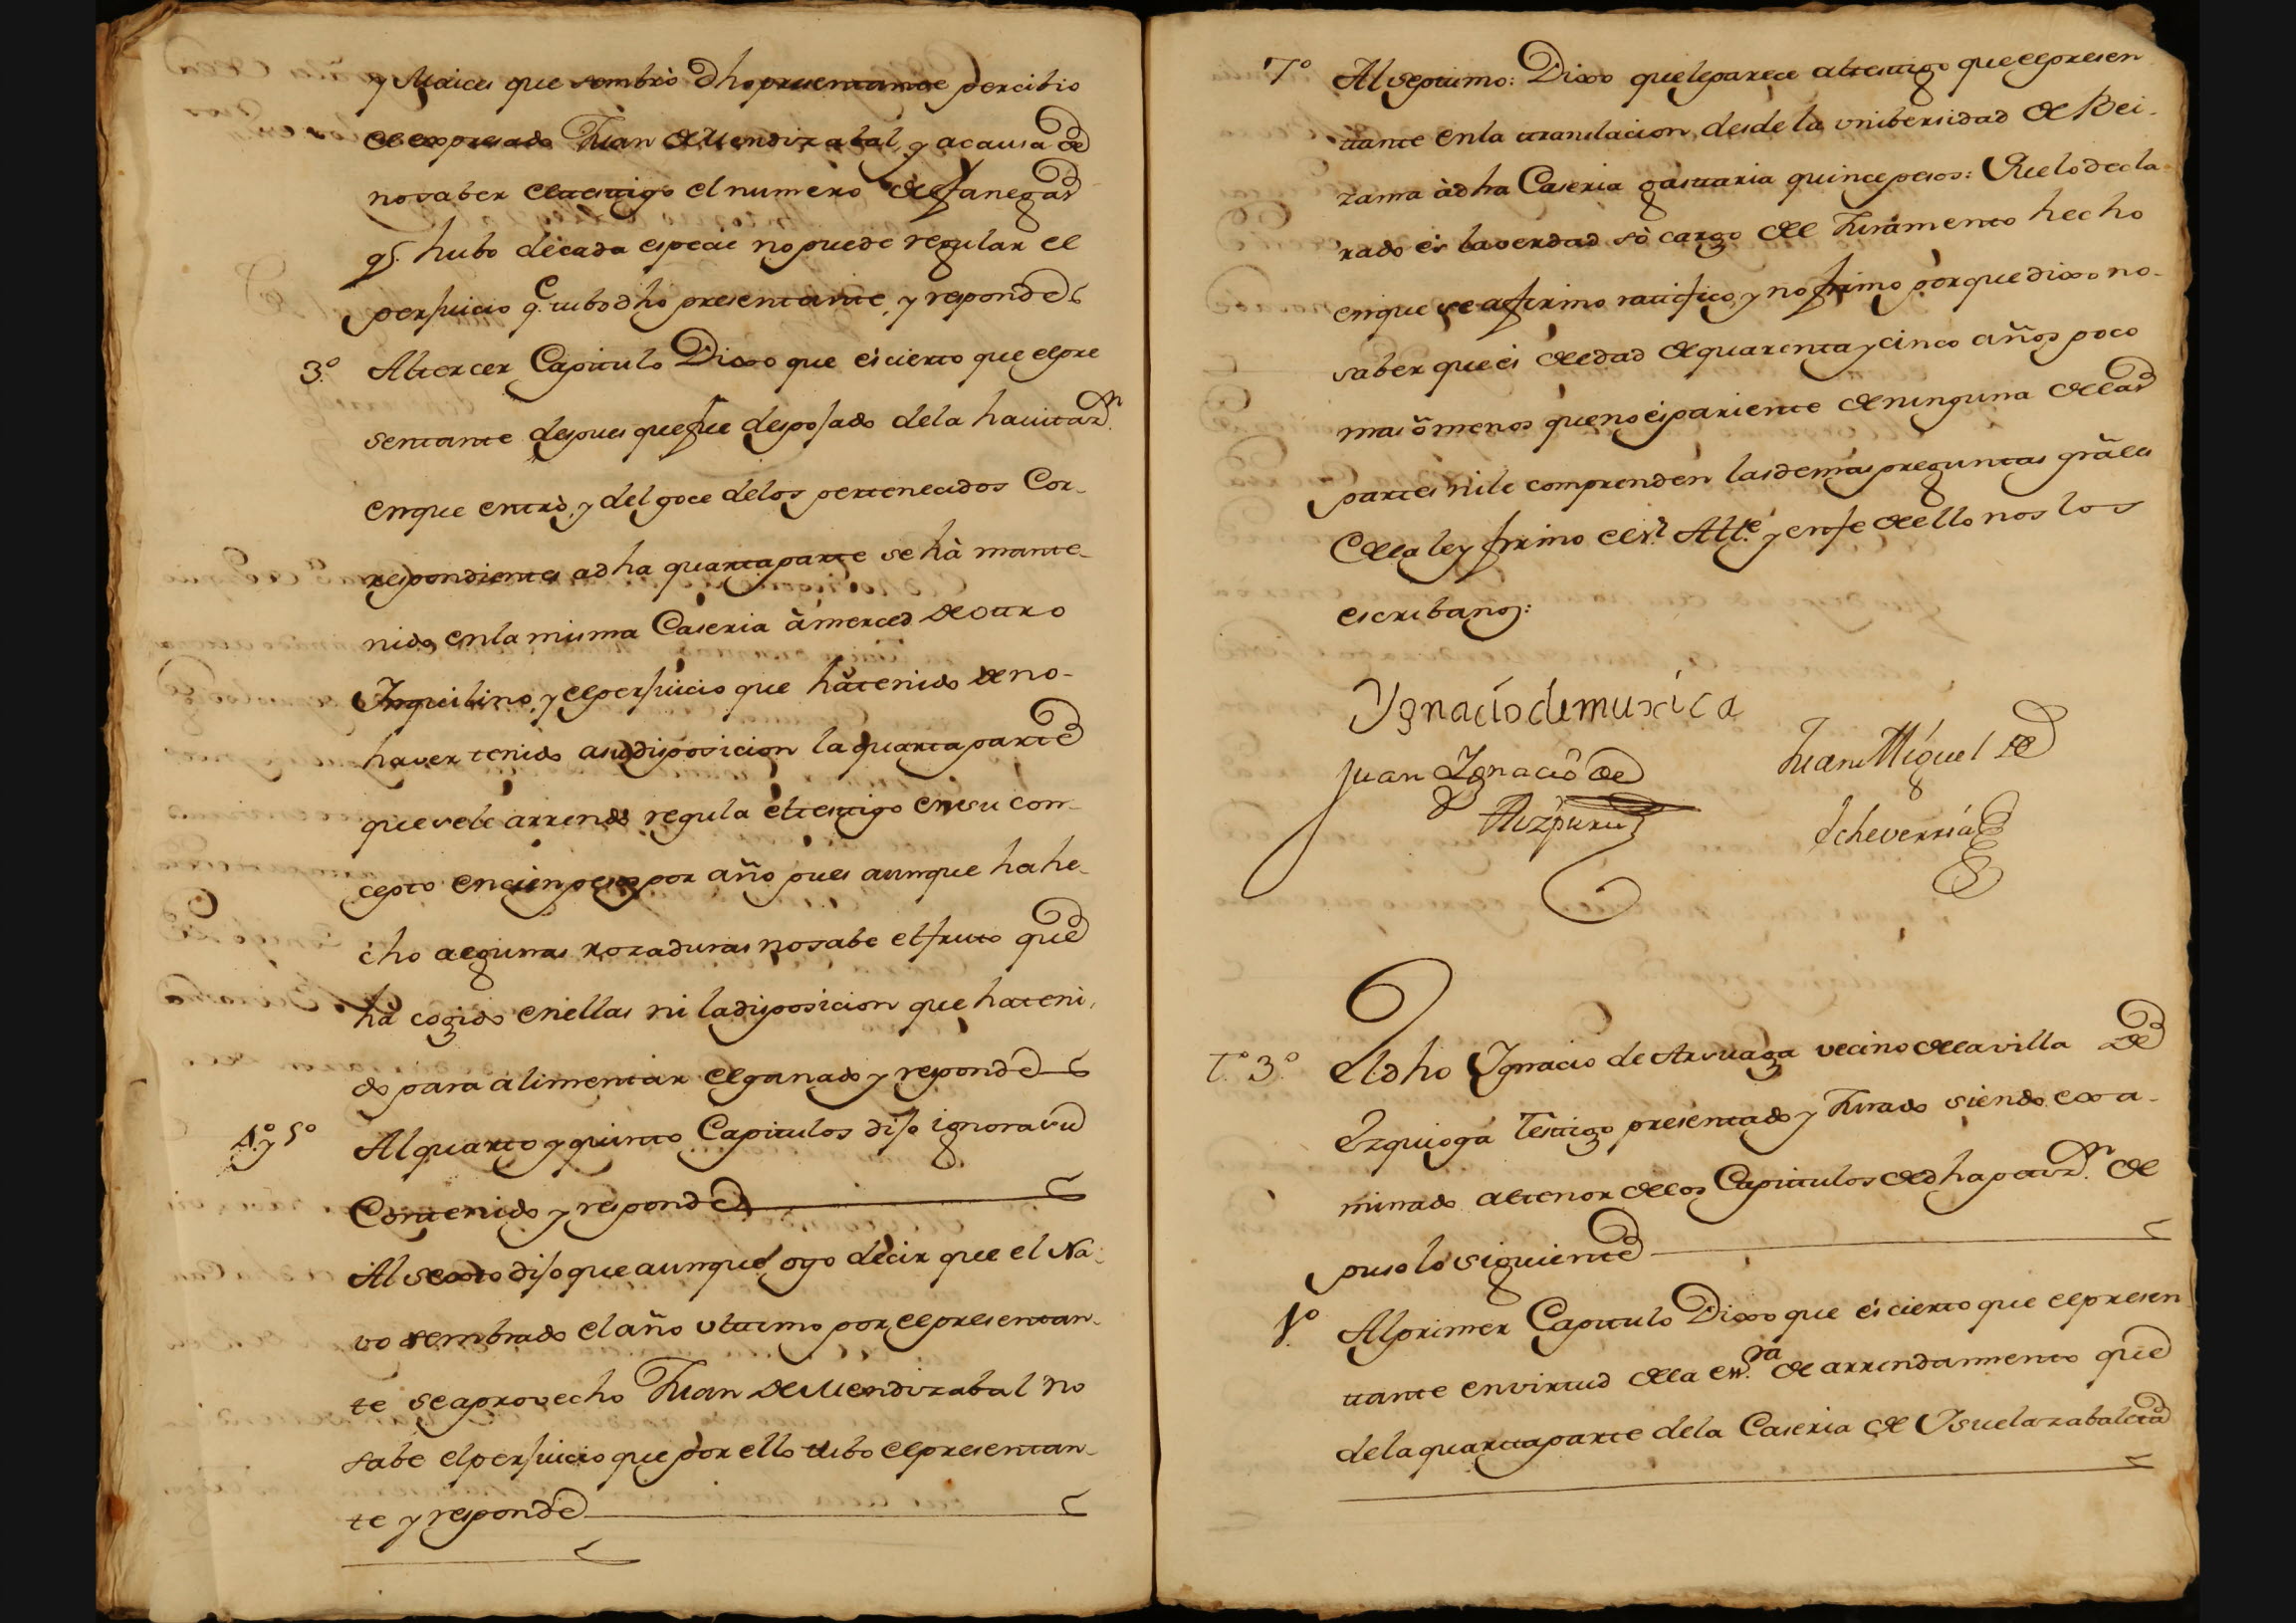 y Maices que sembrò dho presentante percibio
el expresado Juan de Mendizabal, y a causa de
no saber el testigo el numero de fanegas
qe. hubo de cada especie no puede regular el
perjuicio qe. tubo dho presentante, y responde
3.º Al tercer Capitulo Dixo que es cierto que el pre
sentante despues que fue desposado de la havitazn.
en que entrò, y del goce de los pertenecidos Cor-
respondientes a dha quarta parte se hà mante-
nido en la misma Caseria à merced de otro
Inquilino, y el perjuicio que hà tenido de no-
haver tenido a su disposicion la quarta parte
que se le arrendò regula el testigo en su con-
cepto en cien pesos por año pues aunque ha he-
cho algunas rozaduras no sabe el fruto que
ha cogido en ellas ni la disposicion que ha teni-
do para alimentar el ganado y responde
4.º y 5º Al quarto y quinto Capitulos dijo ignora su
Contenido y responde
Al sexto dijo que aunque oyo decir que el Na-
vo sembrado el año ultimo por el presentan-
te se aprovecho Juan de Mendizabal no
sabe el perjuicio que por ello tubo el presentan-
te y responde
7º Al septimo: Dixo que le parece al testigo que el presen
tante en la translacion desde la unibersidad de Bei-
zama à dha Caseria gastaria quince pesos: Que lo decla-
rado es la verdad sò cargo del Juramento hecho
en que se afirmo ratifico, y no firmo porque dixo no-
saber que es de edad de quarenta y cinco años poco
mas ò menos que no es pariente de ninguna de las
partes ni le comprenden las demas preguntas grãles
de la ley firmo el sr. Alle. y en fe de ello nos los
escribanos:
Ygnacio de muxica
Juan Ygnacio de
Aizpuru
Juan Miguel de
Echeverria
T.º 3.º El dho Ygnacio de Arsuaga vecino de la villa de
Ezquioga Testigo presentado y Jurado siendo exa-
minado al tenor de los Capitulos de dha petizn. de
puso lo siguiente
1.º Al primer Capitulo Dixo que es cierto que el presen
tante en virtud de la essra. de arrendamiento que
de la quarta parte de la Caseria de Usuelarabaleta